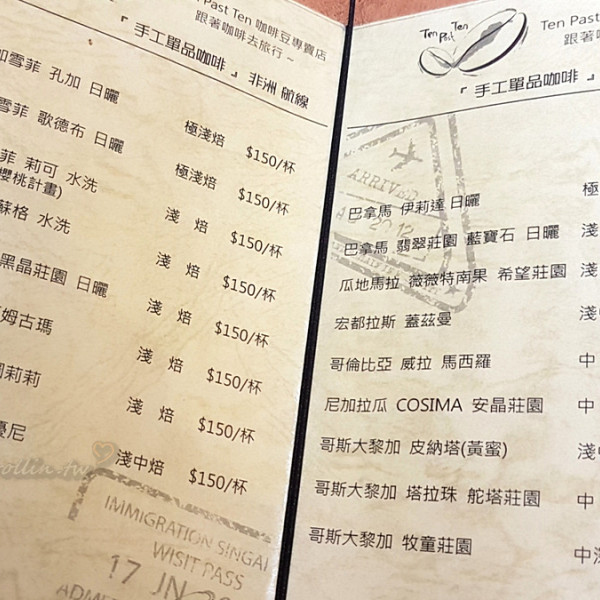 Past Ten 咖啡豆專賣店
跟著咖啡去旅行 ~
『 手工單品咖啡 』 非洲 航線
雪菲 孔加 日曬 極淺焙 $150/杯
雪菲 歌德布 日曬 極淺焙 $150/杯
菲 莉可 水洗 淺 焙 $150/杯
櫻桃計畫)
蘇格 水洗 淺 焙 $150/杯
黑晶莊園 日曬 淺 焙 $150/杯
姆古瑪 淺 焙 $150/杯
莉莉 淺 焙 $150/杯
尼 淺中焙 $150/杯
ollin.tw
IMMIGRATION SINGA
WISIT PASS
17 JN
Ten Past Ten
Ten Past
跟著
『 手工單品咖啡 』
ARRIVED
2012
極
巴拿馬 伊莉達 日曬
巴拿馬 翡翠莊園 藍寶石 日曬 淺
瓜地馬拉 薇薇特南果 希望莊園 淺
宏都拉斯 蓋茲曼 淺
哥倫比亞 威拉 馬西羅 中
尼加拉瓜 COSIMA 安晶莊園 中
哥斯大黎加 皮納塔(黃蜜) 淺
哥斯大黎加 塔拉珠 舵塔莊園 中
哥斯大黎加 牧童莊園 中